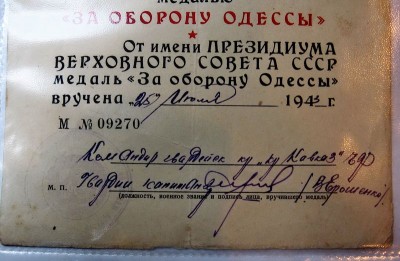 медалью
«ЗА ОБОРОНУ ОДЕССЫ»
От имени ПРЕЗИДИУМА
ВЕРХОВНОГО СОВЕТА СССР
медаль «За оборону Одессы»
вручена „25" Июля 1943 г.
М № 09270
Командир гвардейск кр „кр Кавказ" ЧФ
м. п. Гвардии капитан /Ерошенко/
(должность, военное звание и подпись лица, вручившего медаль)